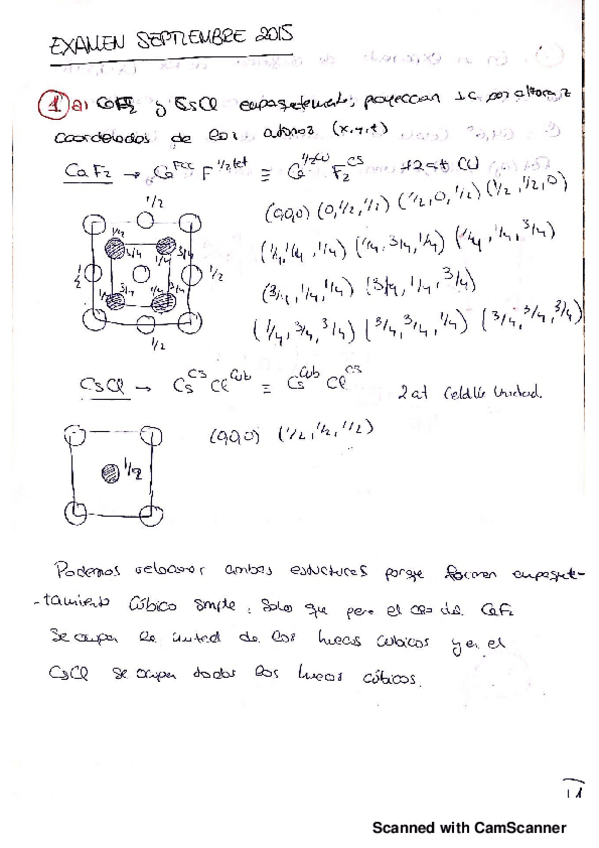 EXAMEN SEPTIEMBRE 2015
1 a) CaF2 y CsCl empaquetamiento, proyección ⊥c por alturas z
coordenadas de los átomos (x,y,z)
CaF2 → Ca^FCC F^1/2tet ≡ Ca^1/2CU F2^CS 12 at CU
(0,0,0) (0,1/2,1/2) (1/2,0,1/2) (1/2,1/2,0)
(1/4,1/4,1/4) (1/4,3/4,1/4) (1/4,1/4,3/4)
(3/4,1/4,1/4) (3/4,1/4,3/4)
(1/4,3/4,3/4) (3/4,3/4,1/4) (3/4,3/4,3/4)
1/2
1/4 3/4 1/4 3/4
1/2 1/2
1/4 3/4 1/4 3/4
1/2
CsCl → Cs^CS Cl^Cub ≡ Cs^Cub Cl^CS 2 at Celdilla Unidad.
(0,0,0) (1/2,1/2,1/2)
1/2
Podemos relacionar ambas estructuras porque forman empaque-
-tamiento cúbico simple, solo que para el caso de CaF2
se ocupan la mitad de los huecos cúbicos y en el
CsCl se ocupan todos los huecos cúbicos.
11
Scanned with CamScanner